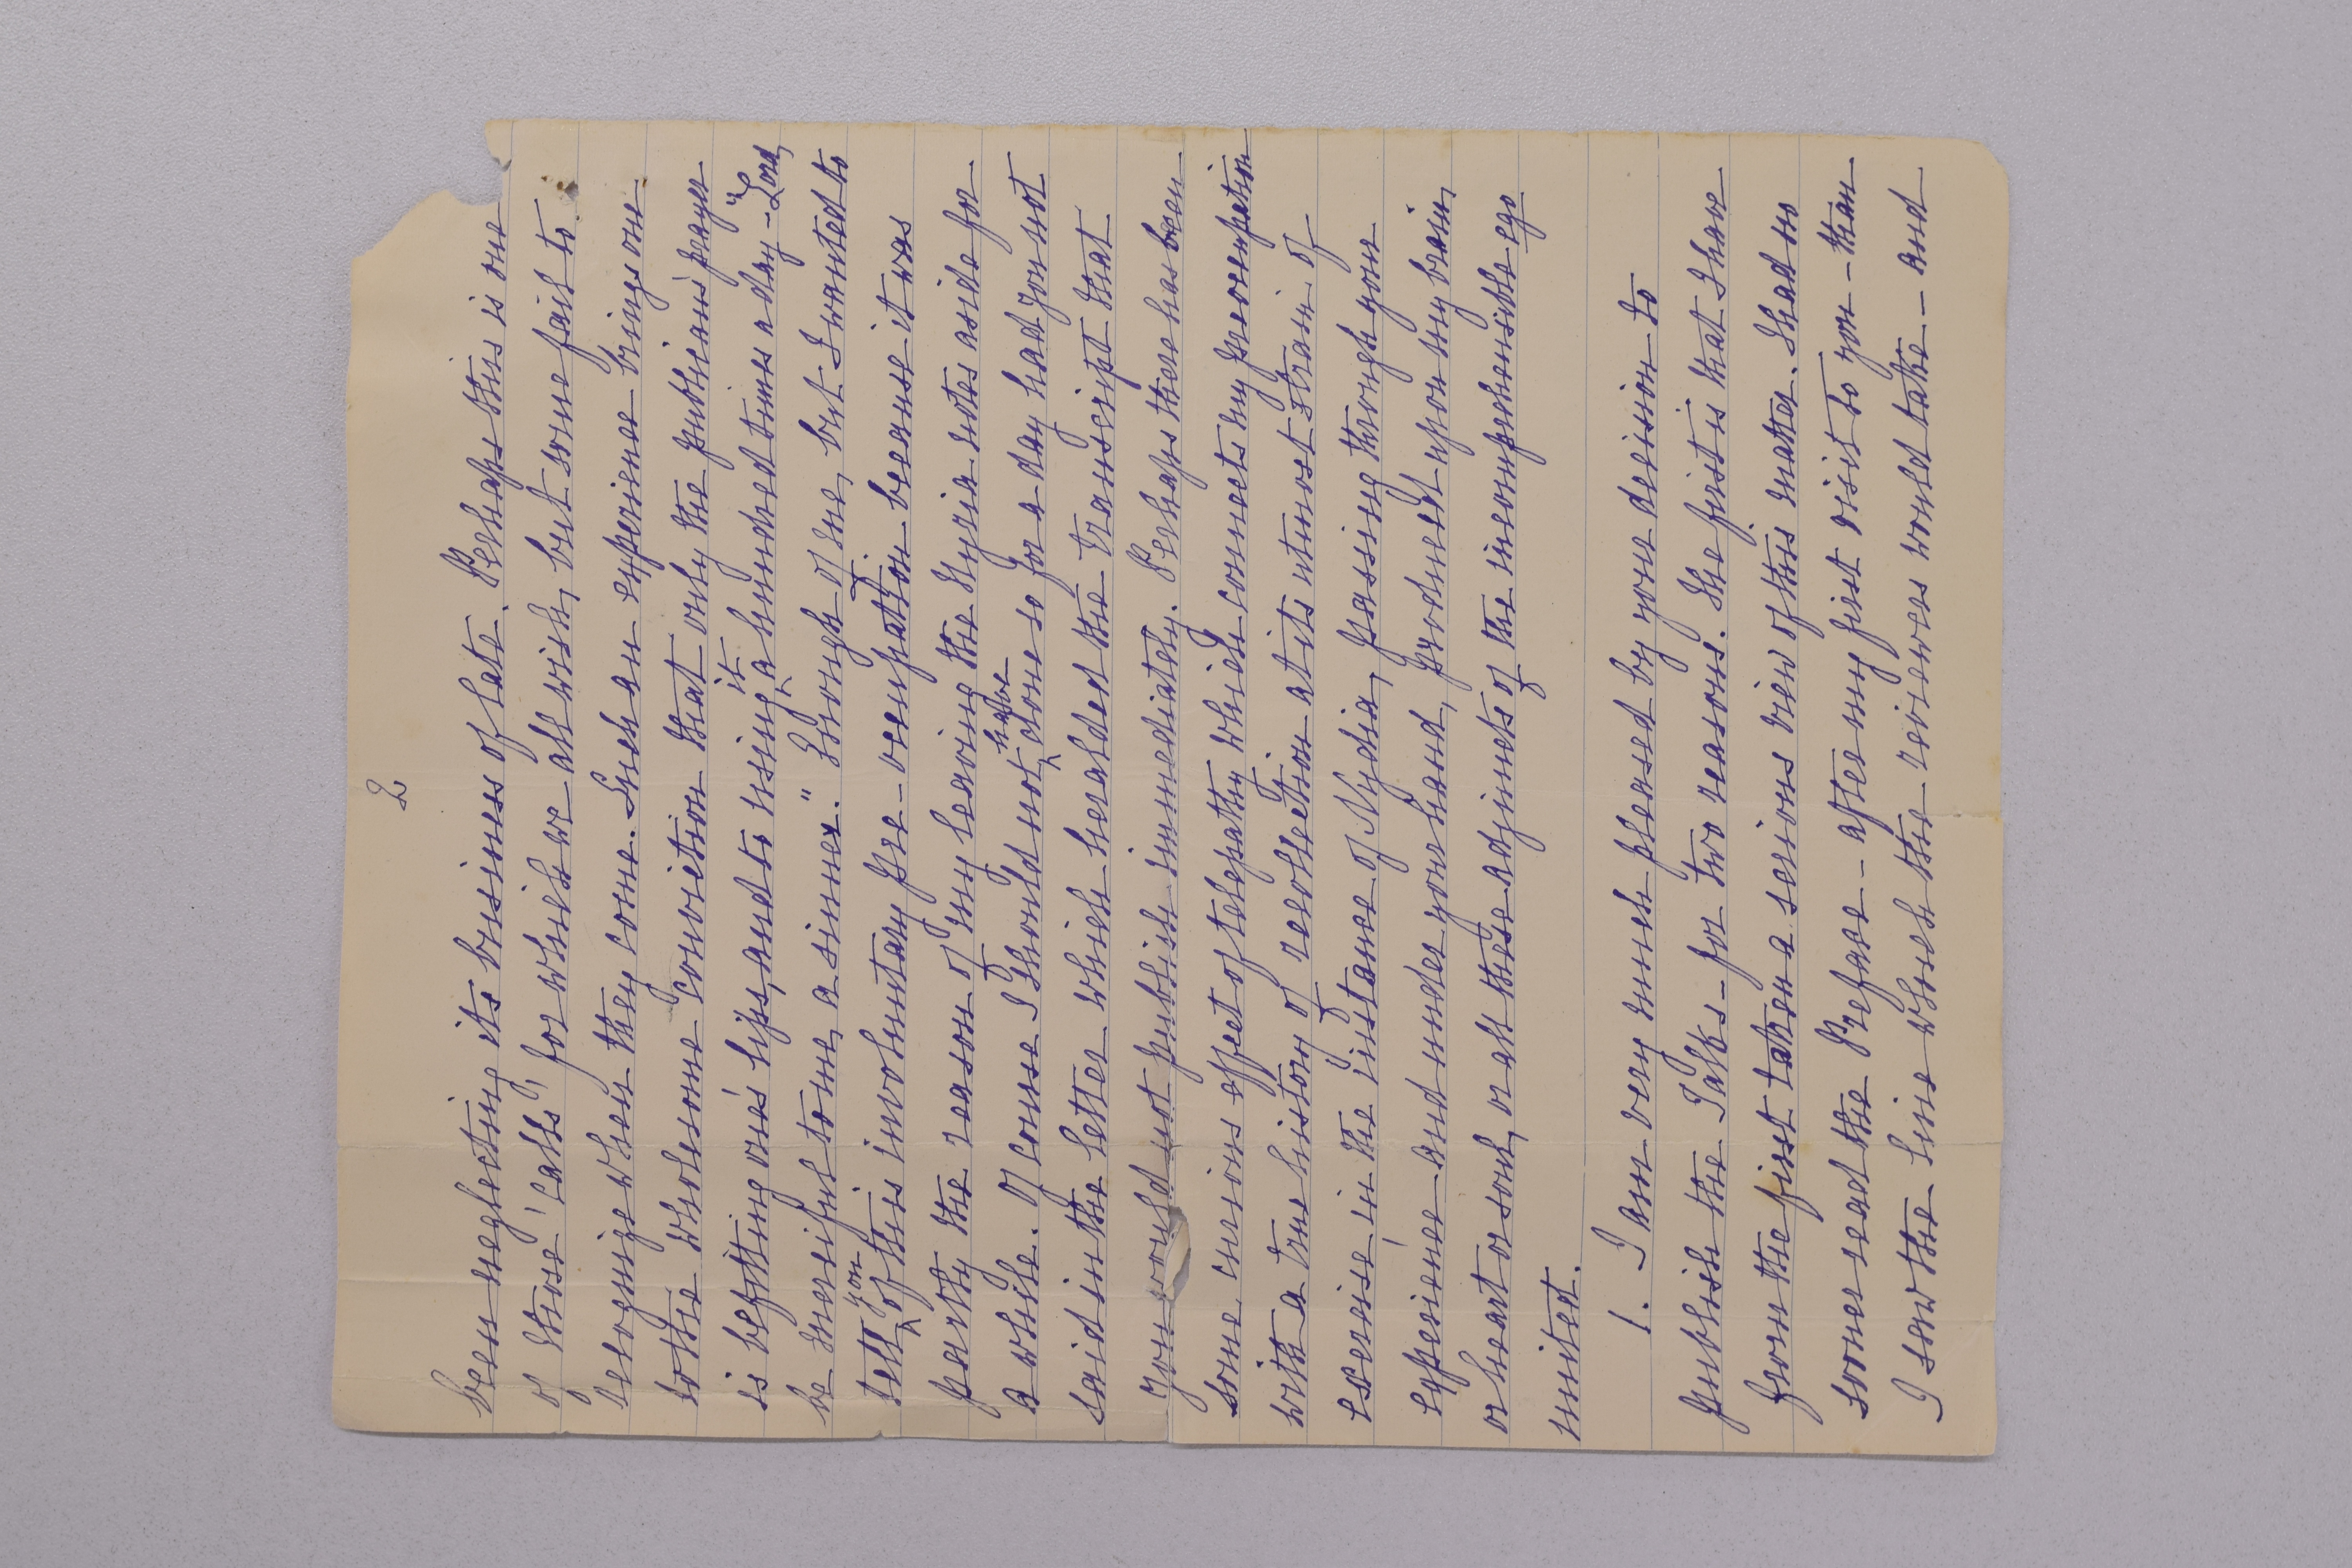 2
been neglecting its business of late. Perhaps this is one
of those 'calls' for which we all wish, but some fail to
recognize when they come. Such an experience brings one
to the wholesome conviction that only the publican's prayer
is befitting one's lips, and to using it a hundred times a day - "Lord,
be merciful to me, a sinner." Enough of me, but I wanted to
tell you of this involuntary pre-occupation because it was
partly the reason of my leaving the Nydia notes aside for
a while. Of course I should not have done so for a day had you not
said in the letter which heralded the transcript that
you would not publish immediately. Perhaps there has been
some curious effect of telepathy which connects my preoccupation
with a true history of recollection at its utmost strain of
exercise in the instance of Nydia, passing through your
experience and under your hand, produced upon my brain,
or heart or soul, or all these adjuncts of the incomprehensible ego
united.
1. I am very much pleased by your decision to
publish the Talks - for two reasons. The first is that I have
from the first taken a serious view of this matter. I had no
sooner read the Preface - after my first visit to you - than
I saw the line which the reviewers would take - and